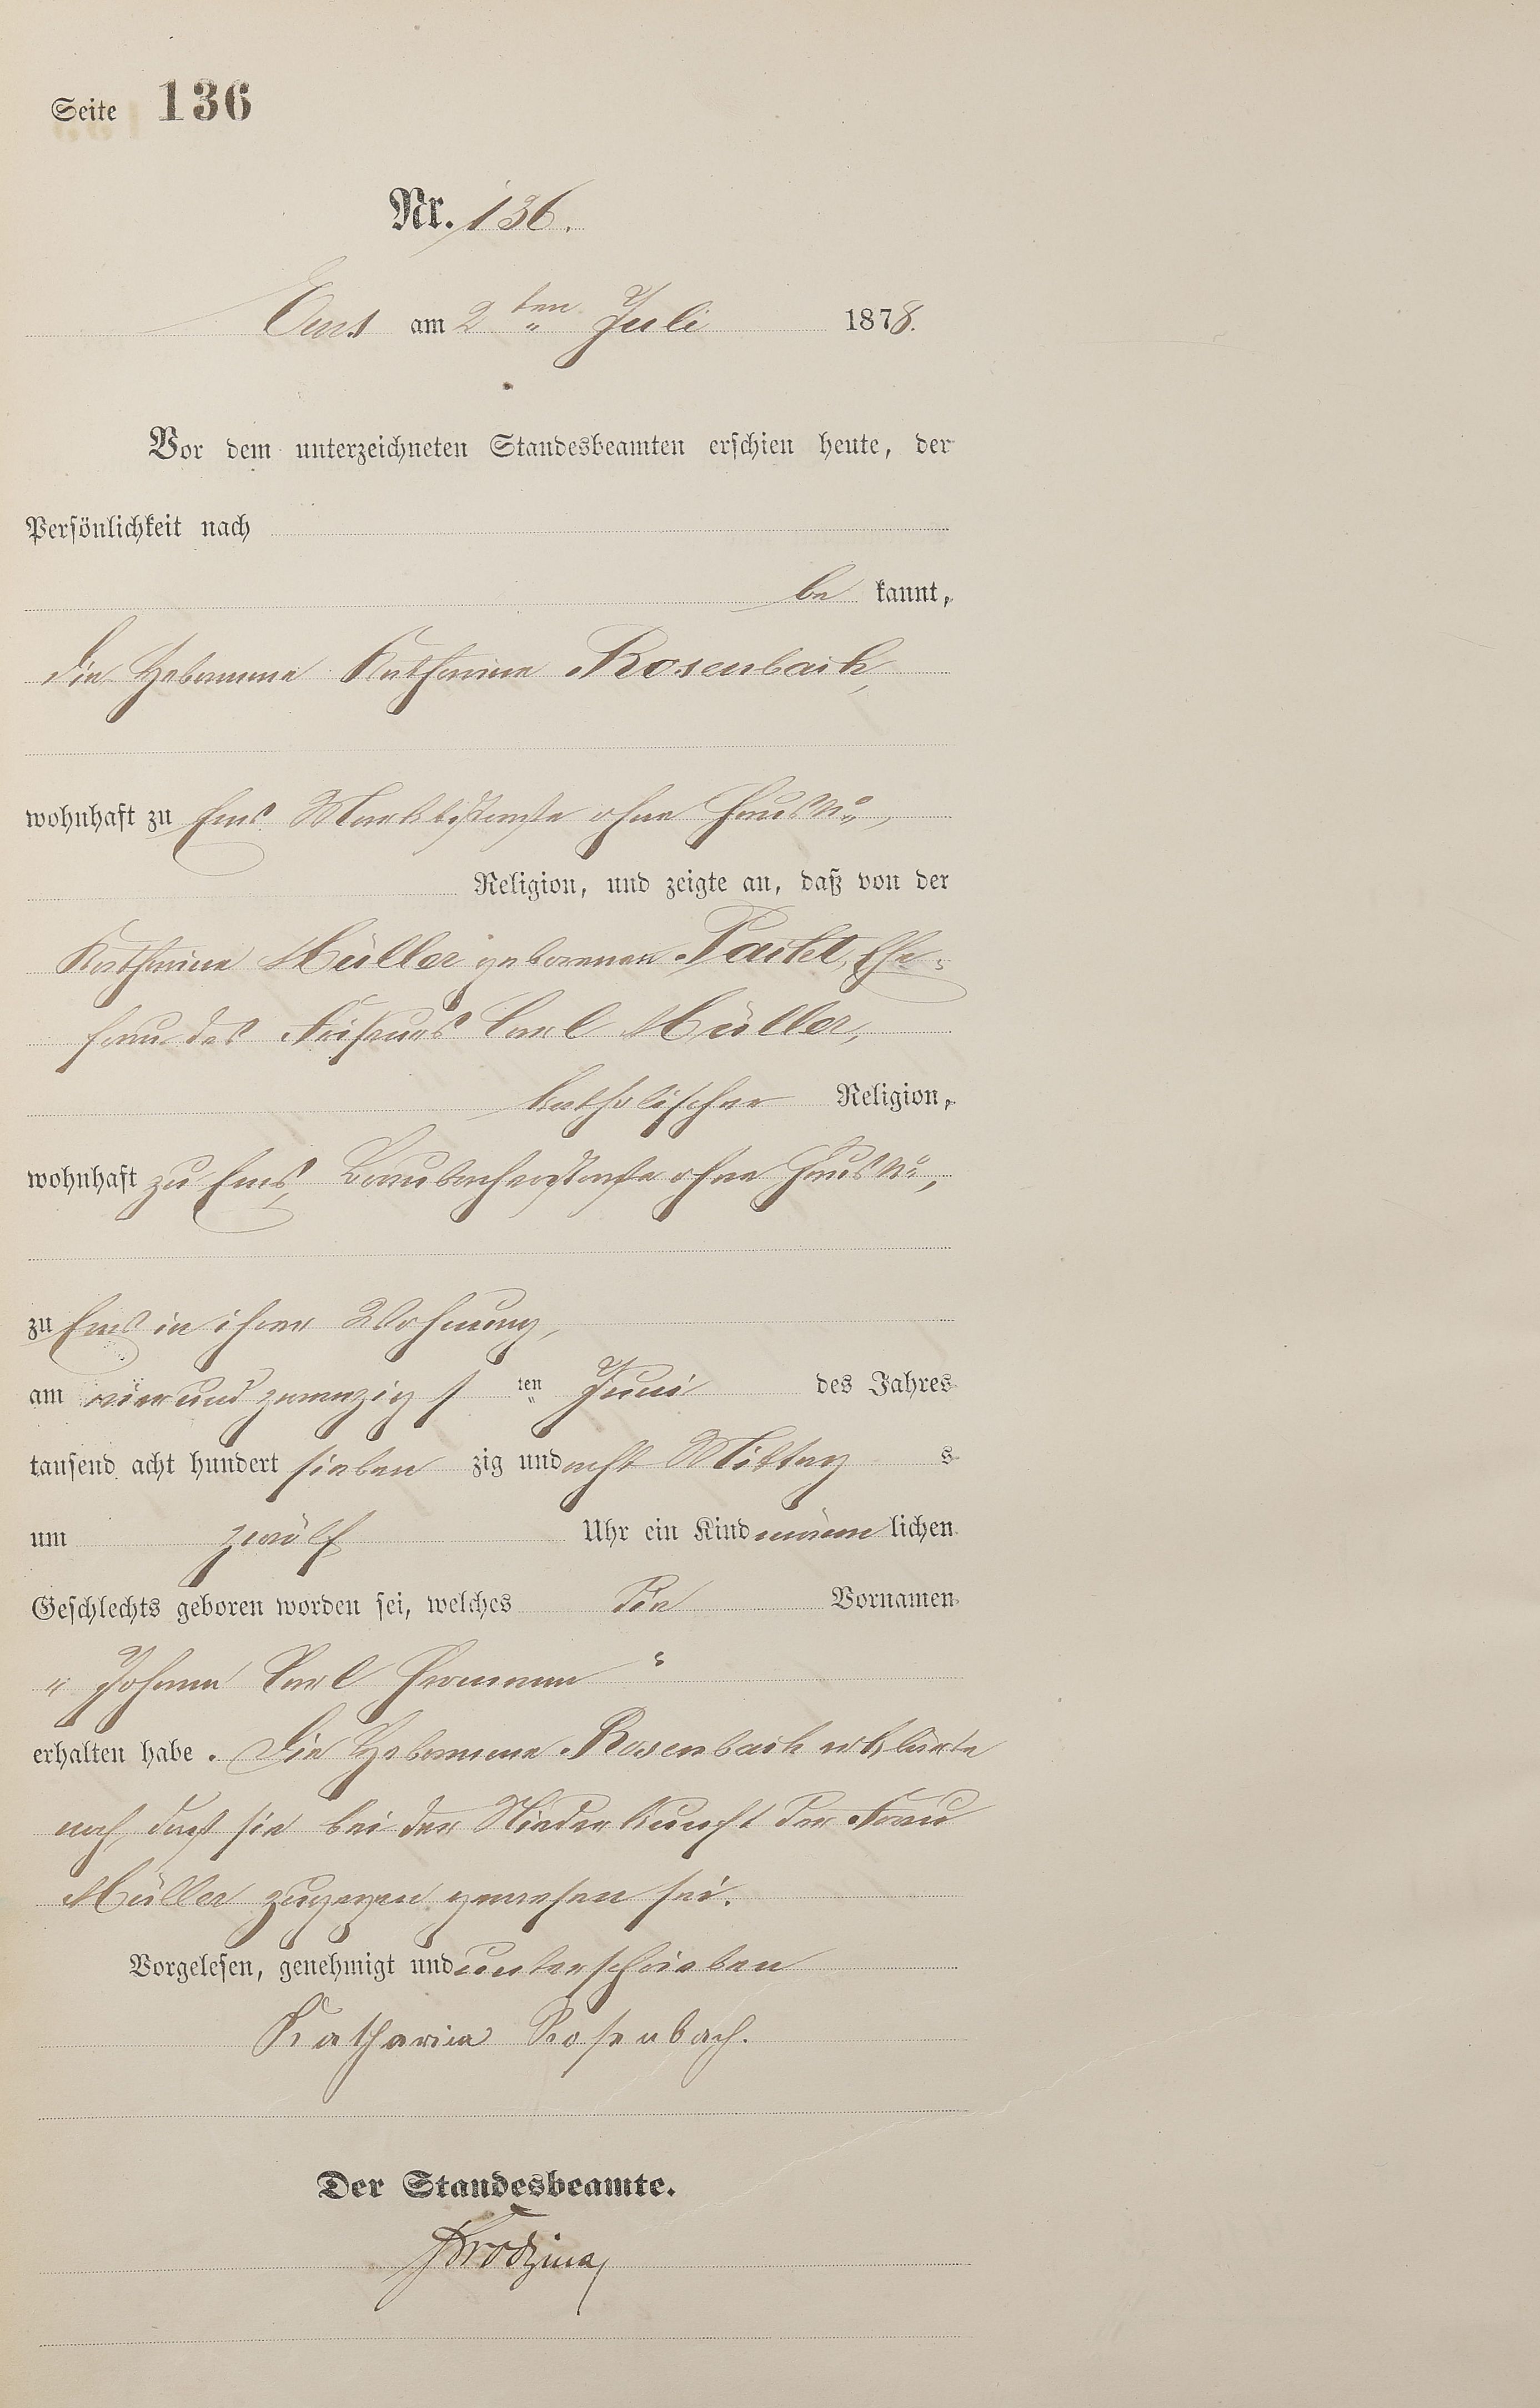 Seite 136
Nr. 136.
Ems am 2 ten Juli 1878.
Vor dem unterzeichneten Standesbeamten erschien heute, der
Persönlichkeit nach
be kannt,
die Hebamme Katharina Rosenbach,
wohnhaft zu Ems Marktstraße ohne Haus No,
Religion, und zeigte an, daß von der
Katharina Müller geborenen Ehe-
frau des Friseurs Carl Müller,
katholischer Religion,
wohnhaft zu Ems, Braubacherstraße ohne Haus No,
zu Ems in ihrer Wohnung,
am vier und zwanzigs ten Juni des Jahres
tausend acht hundert sieben zig und acht Mittag s
um zwölf Uhr ein Kind männ lichen
Geschlechts geboren worden sei, welches die Vornamen
„ Johann Carl Hermann “
erhalten habe. Die Hebamme Rosenbach erklärte
noch, daß sie bei der Niederkunft der Frau
Müller zugegen gewesen sei.
Vorgelesen, genehmigt und unterschrieben
Katharina Rosenbach.
Der Standesbeamte.